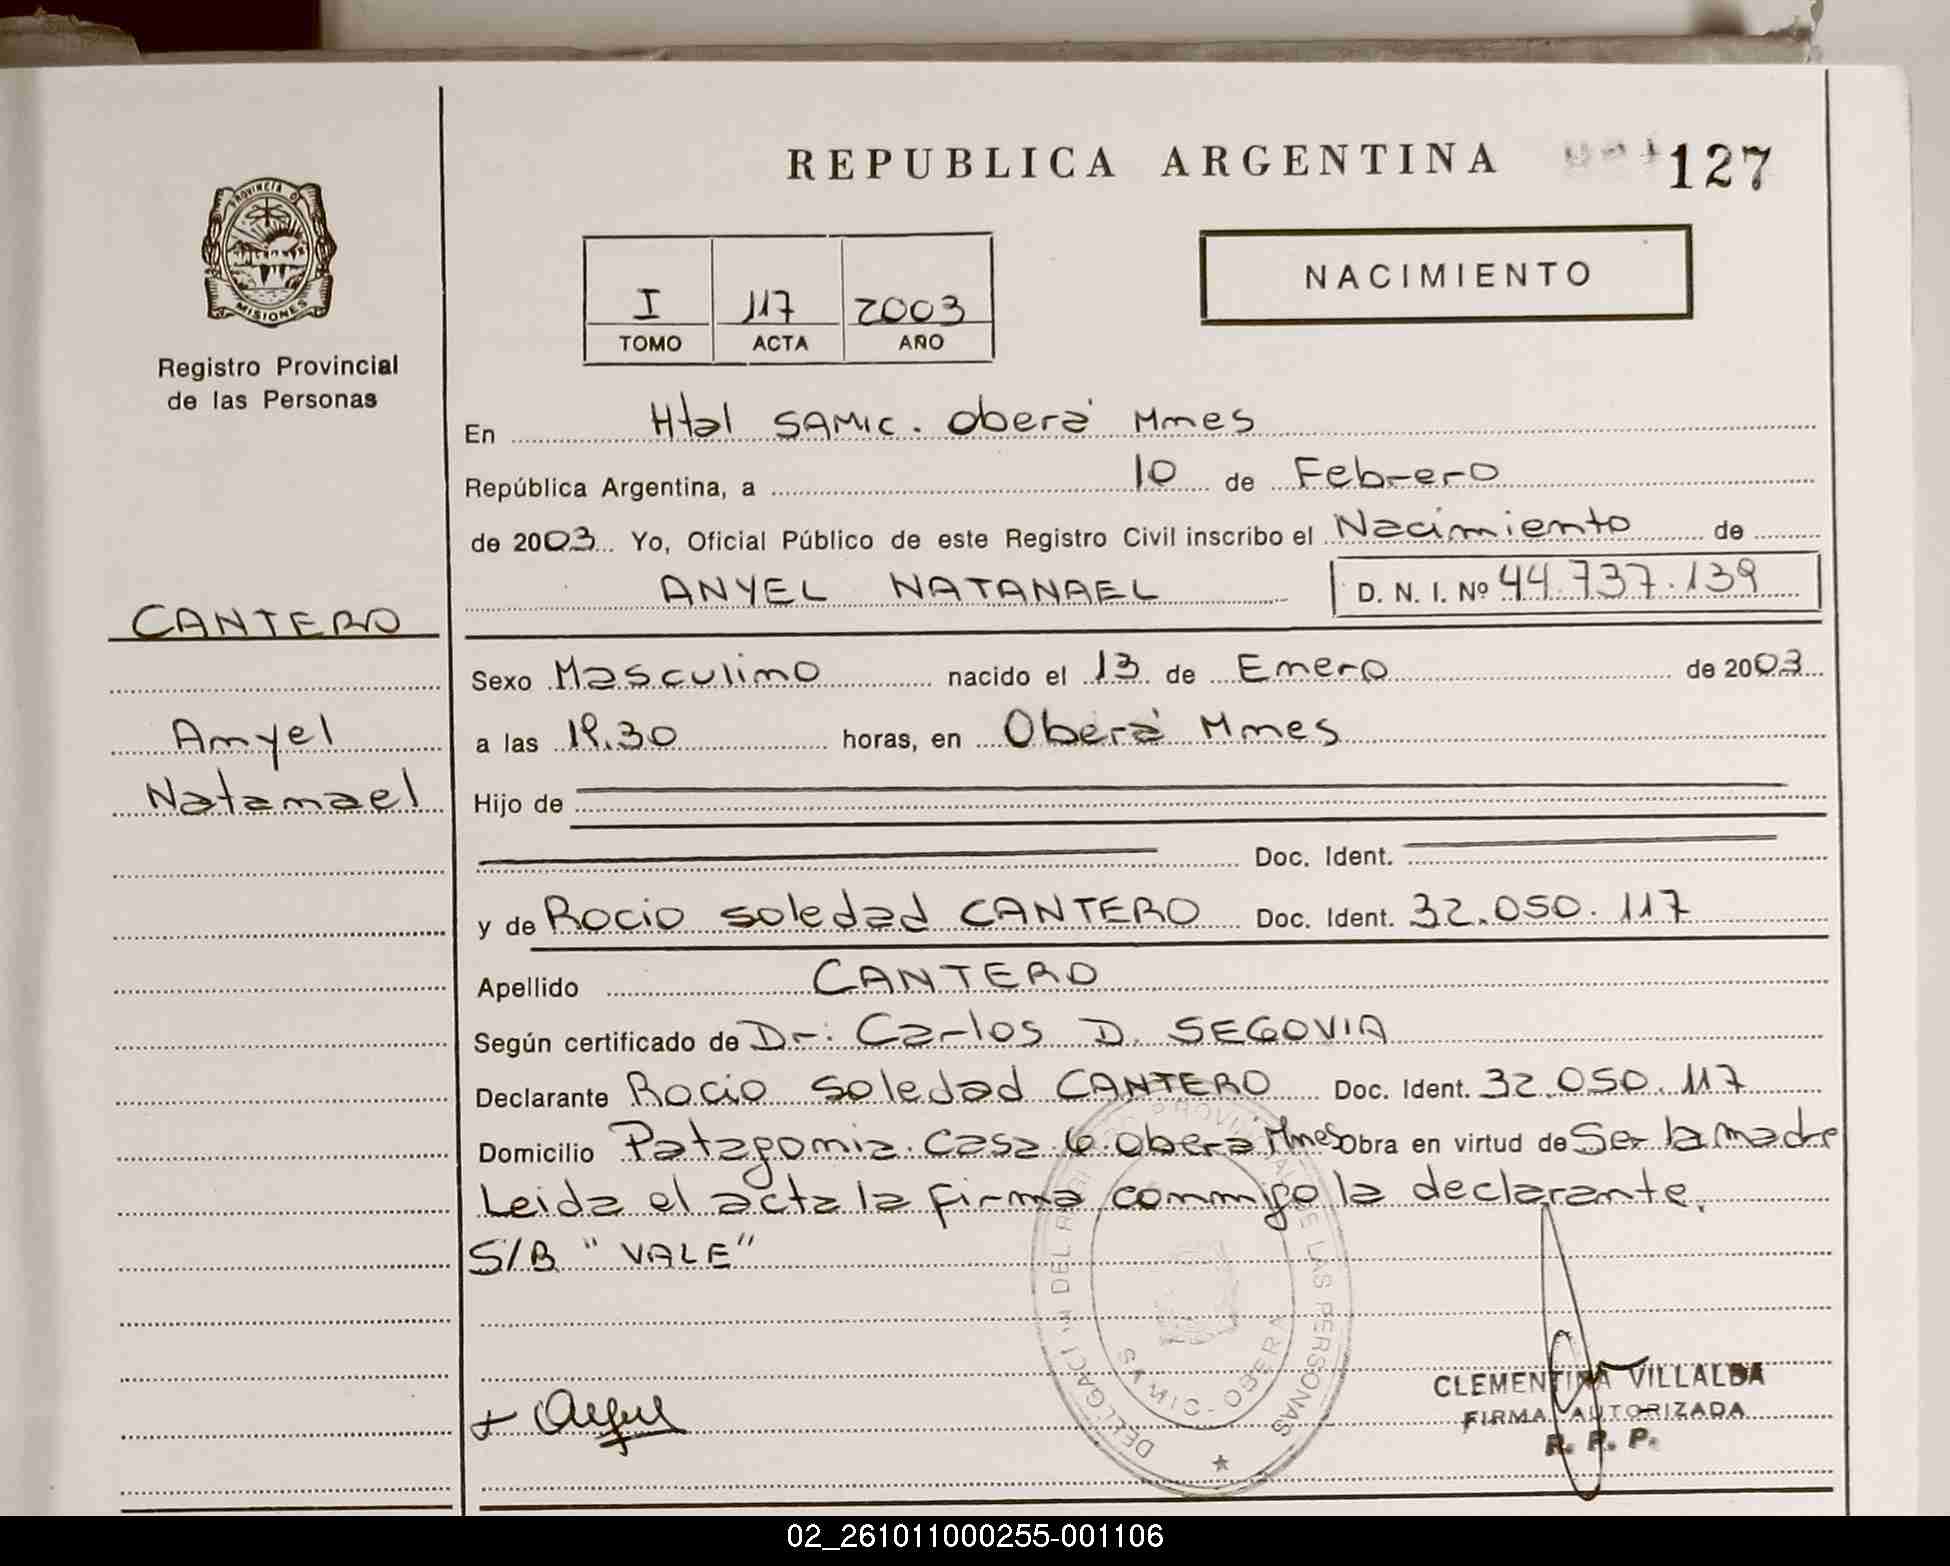 REPUBLICA ARGENTINA 127
PROVINCIA D
MISIONES
Registro Provincial
de las Personas
I 117 2003
TOMO ACTA AÑO
NACIMIENTO
En Htal SAMIC. Oberá Mnes
República Argentina, a 10 de Febrero
de 2003 Yo, Oficial Público de este Registro Civil inscribo el Nacimiento de
ANYEL NATANAEL D. N. I. Nº 44.737.139
CANTERO
Anyel
Natanael
Sexo Masculino nacido el 13 de Enero de 2003
a las 19.30 horas, en Oberá Mnes
Hijo de
Doc. Ident.
y de Rocio Soledad CANTERO Doc. Ident. 32.050.117
Apellido CANTERO
Según certificado de Dr: Carlos D. SEGOVIA
Declarante Rocio Soledad CANTERO Doc. Ident. 32.050.117
Domicilio Patagonia. Casa 6. Oberá Mnes Obra en virtud de Ser la madre
Leida el acta la firma conmigo la declarante.
S/B "VALE"
DELEGACION DEL PROVINCIAL DE LAS PERSONAS
SAMIC - OBERA
CLEMENTINA VILLALBA
FIRMA AUTORIZADA
R. P. P.
02_261011000255-001106